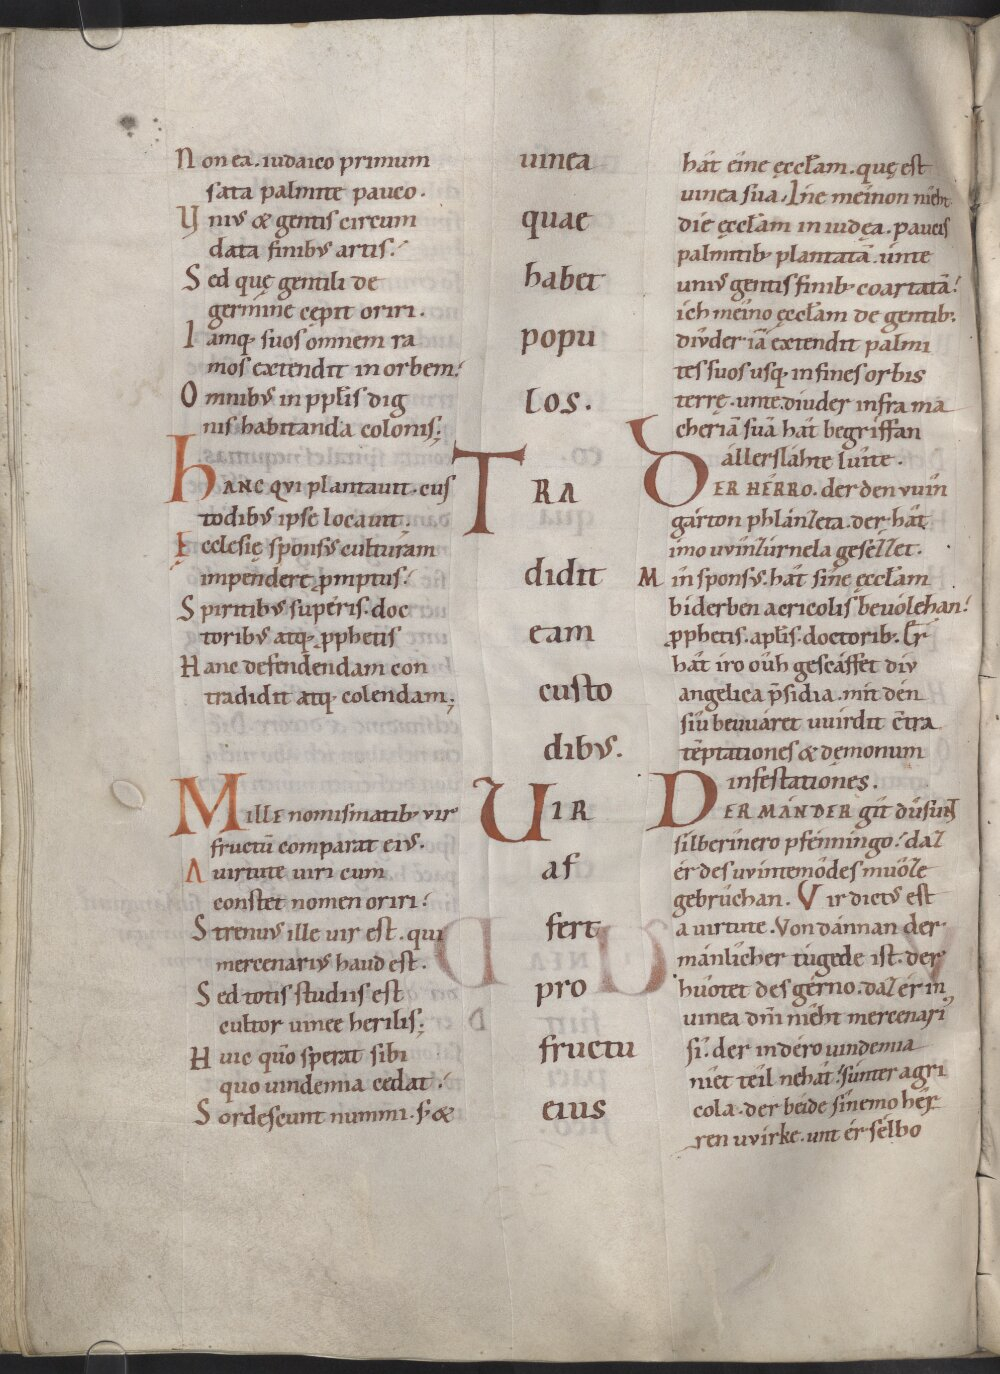 Non ea. iudaico primum
sata palmite pauco.
Vnius & gentis circum
data finibus artis.
Sed quę gentili de
germine cępit oriri.
Iamq; suos omnem ra
mos extendit in orbem.
Omnibus in pp̄lis dig
nis habitanda colonis;
HANC QVI plantauit. cus
todibus ipse locauit
Ecclesię sponsus culturam
impendere ꝓmptus.
Spiritibus supęris. doc
toribus atq; ꝓphetis
Hanc defendendam con
tradidit atq; colendam;
MILLE nomismatib; vir
fructū comparat eius.
A uirtute uiri cum
constet nomen oriri.
Strenuus ille uir est. qui
mercenarius haud est.
Sed totis studiis est
cultor uineę herilis;
Huic quo sperat sibi
quo uindemia cedat.
Sordescunt nummi. s; &
uinea
quae
habet
popu
los.
TRA
didit
eam
custo
dibus.
UIR
af
fert
pro
fructu
eius
hât êine ęccłam. quę est
uinea sua. Îne mêinon nîeht
dîe ęccłam in iudęa. paucis
palmitib; plantatā. unte
unius gentis finib; coartatā.
ich mêino ęccłam de gentib;
dîuder iā extendit palmi
tes suos usq; in fines orbis
terrę. unte. diuder infra ma
cheriā suā hât begriffan
állerslâhte lûite.
DER HÊRRO. der den vuîn
gárton phlánzeta. der hât
imo uvînzúrnela gesézzet.
Mîn sponsus. hât sîne ęccłam
biderben agricolis bevólehan.
ꝓphetis. apłis. doctorib; Êr
hât iro ôuh gescáffet div
angelica p̄sidia. mit dén
siu beuuáret uuirdit c̄tra
tēptationes & dęmonum
infestationes.
DER MAN DER gît dûsunt
silberînero pfénningo. daz
ér des uvintemôdes muôze
gebrûchan. Vir dictus est
a uirtute. Von dánnan der
mánlîcher túgede ist. der
hûotet des gérno. daz ér in
uinea dn̄i nîeht mercenarius
sî. der in déro uindemia
nîet teil nehât. súnter agri
cola. der bêide sînemo hêr
ren uvirke. unt ér sélbo